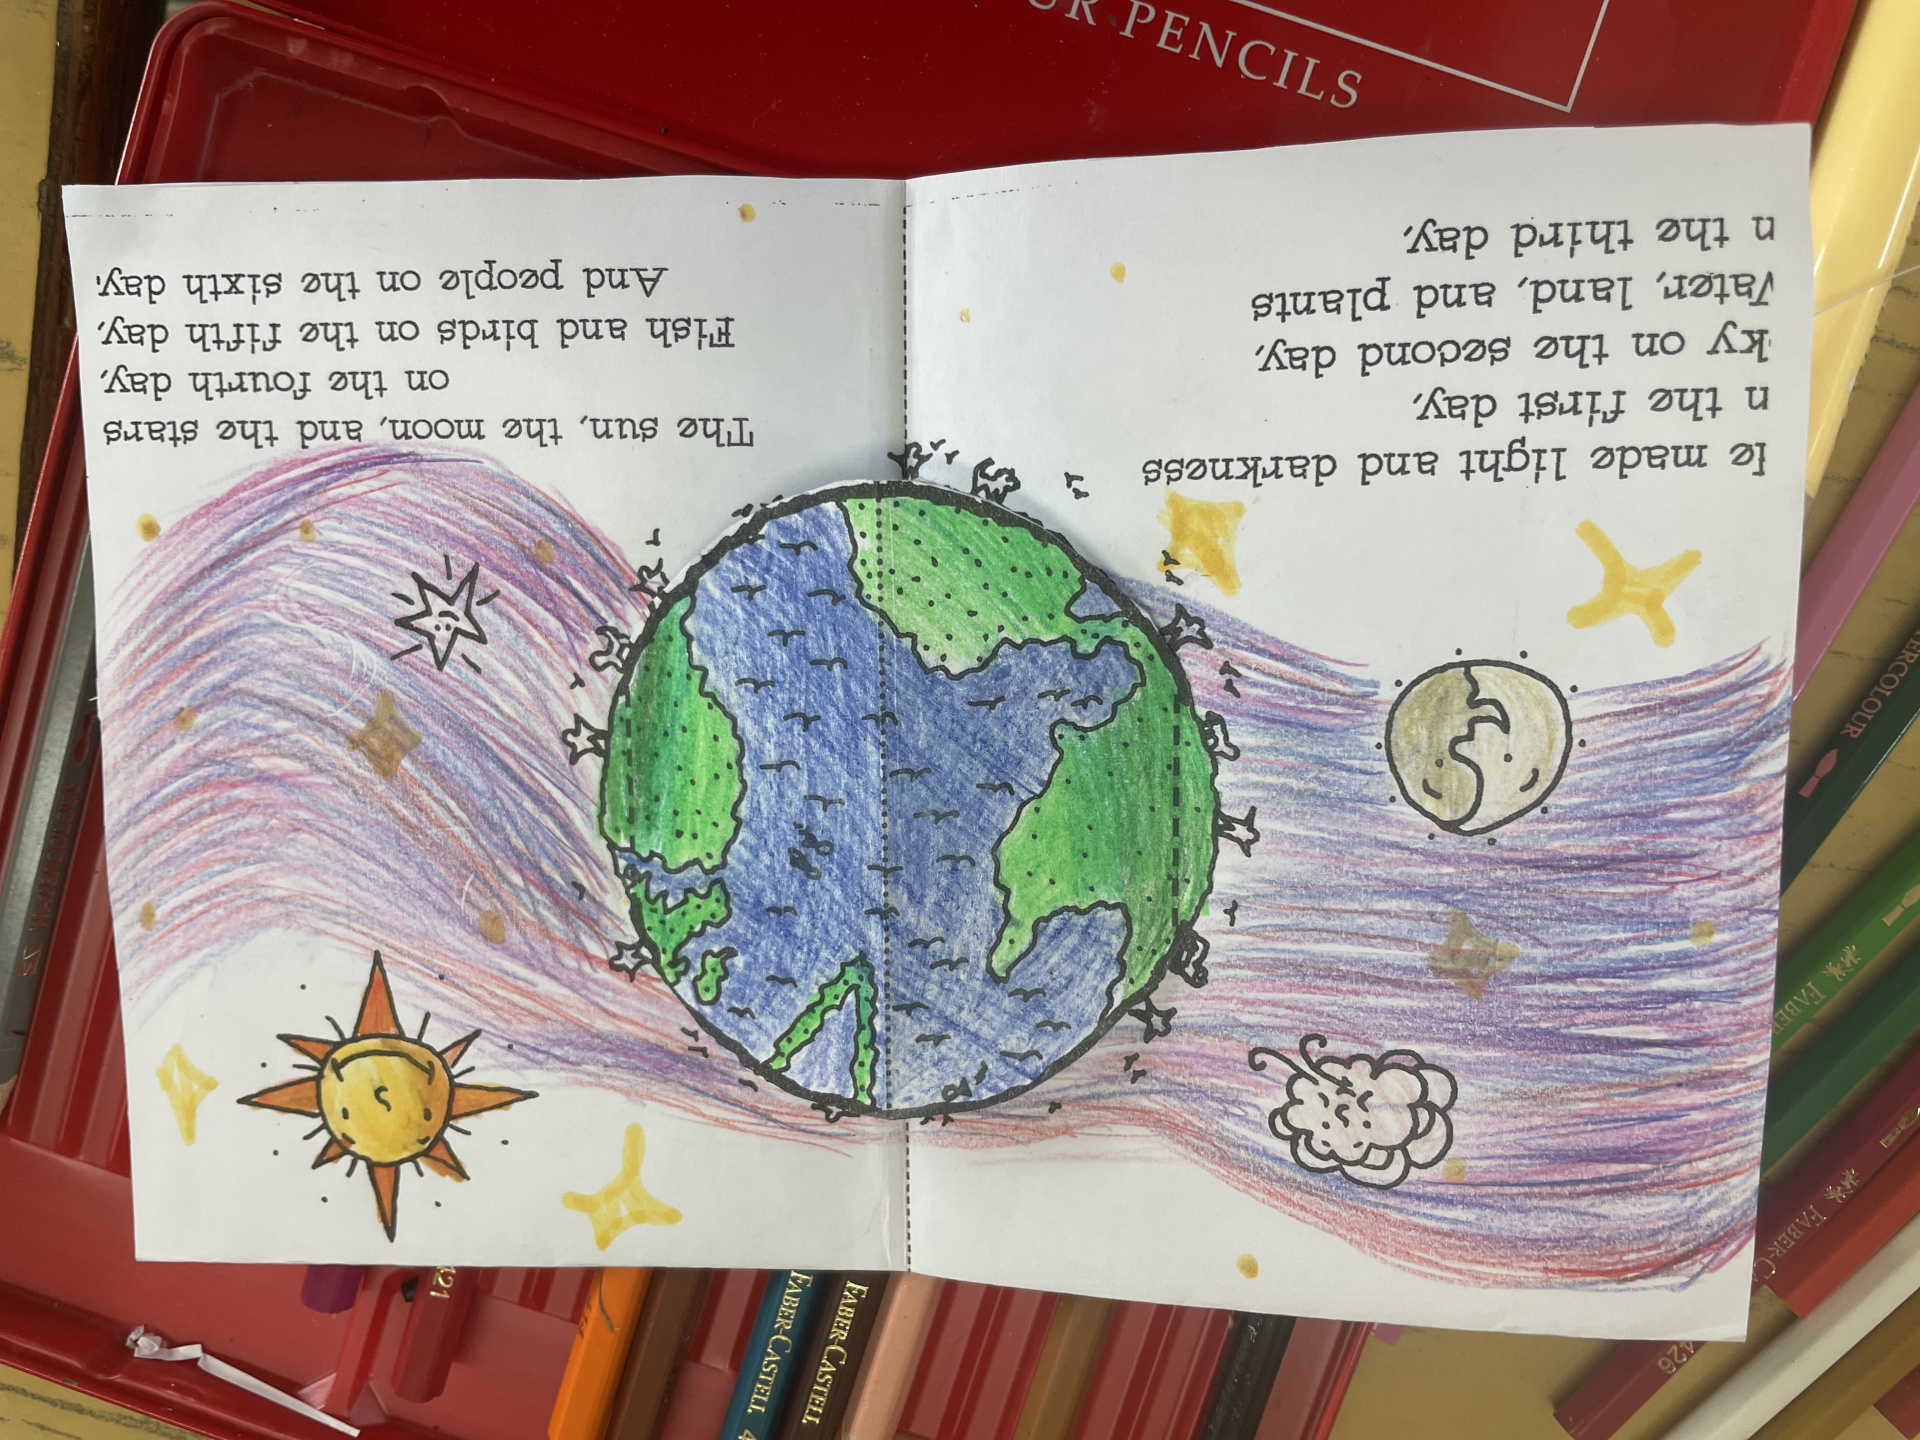 le made light and darkness
n the first day,
ky on the second day,
Vater, land, and plants
n the third day,
The sun, the moon, and the stars
on the fourth day,
Fish and birds on the fifth day,
And people on the sixth day.
UR PENCILS
ERCOLOUR
FABER
FABER-C
FABER-CASTELL
FABER-CASTELL 4
421
426